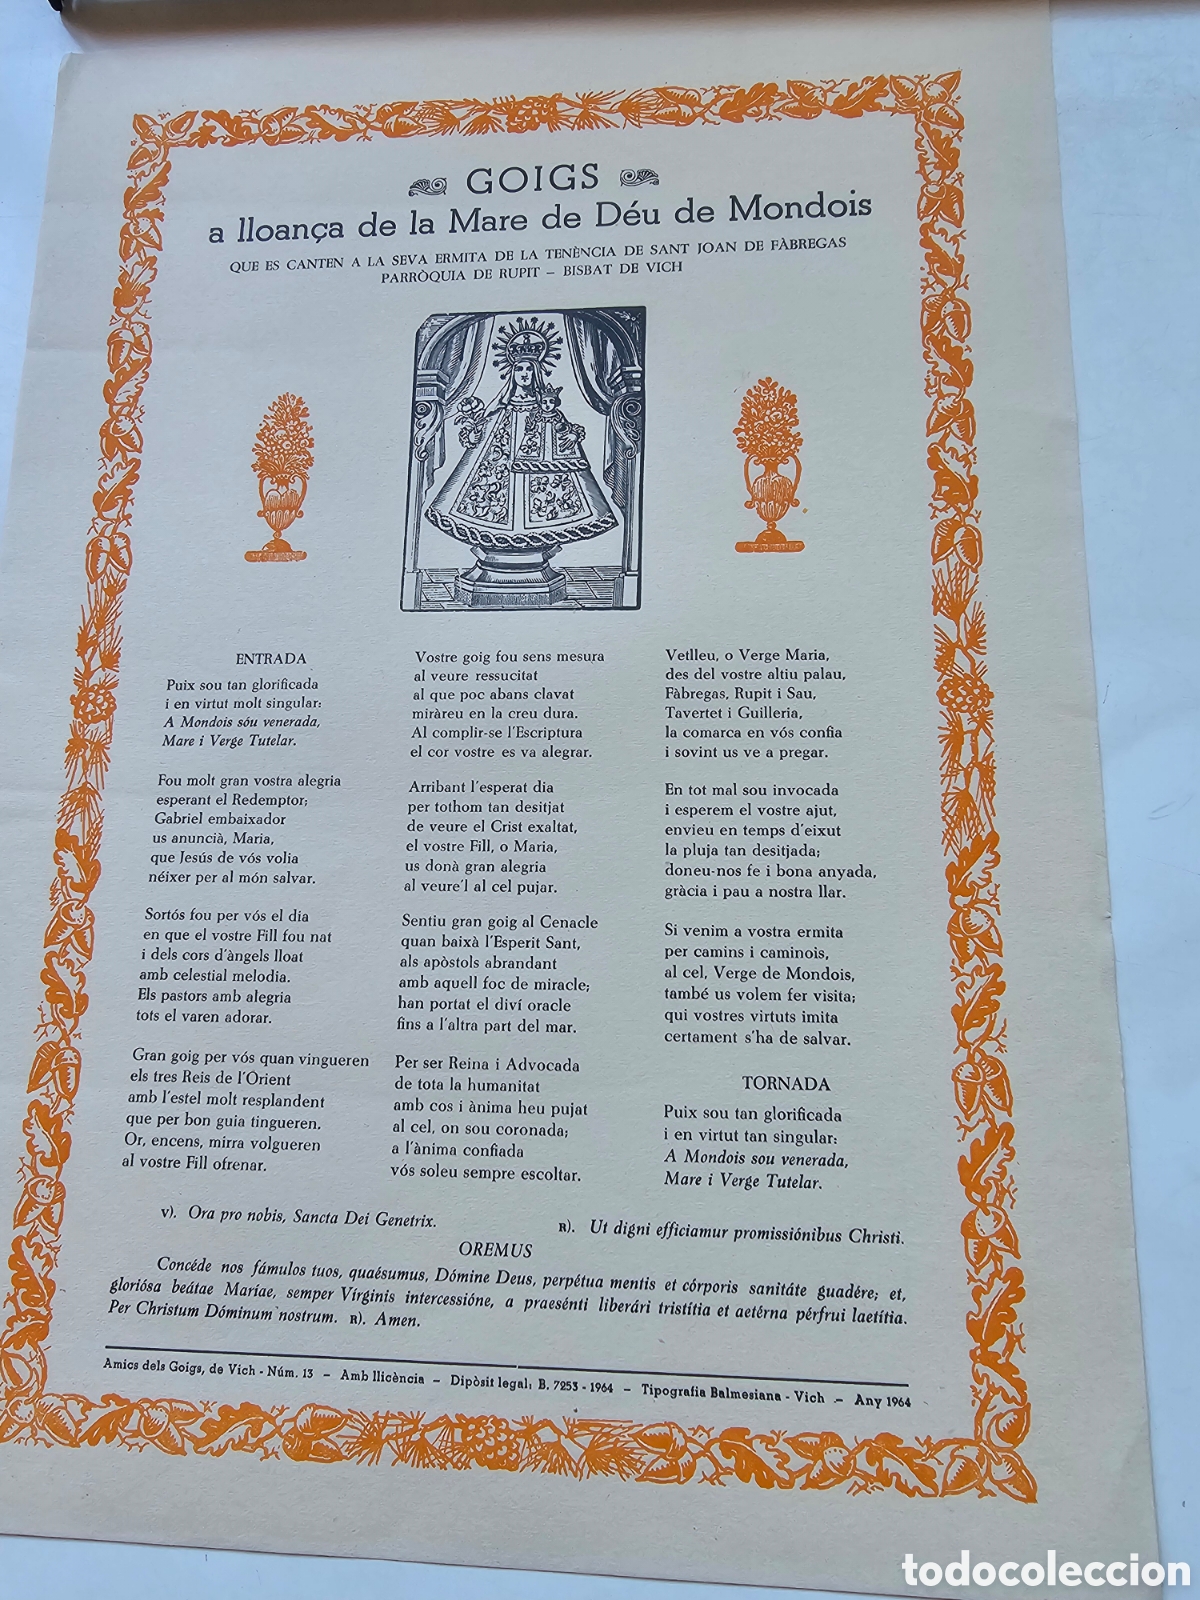 GOIGS
a lloança de la Mare de Déu de Mondois
QUE ES CANTEN A LA SEVA ERMITA DE LA TENÈNCIA DE SANT JOAN DE FÀBREGAS
PARRÒQUIA DE RUPIT – BISBAT DE VICH
ENTRADA
Puix sou tan glorificada
i en virtut molt singular:
A Mondois sóu venerada,
Mare i Verge Tutelar.
Fou molt gran vostra alegria
esperant el Redemptor;
Gabriel embaixador
us anuncià, Maria,
que Jesús de vós volia
néixer per al món salvar.
Sortós fou per vós el dia
en que el vostre Fill fou nat
i dels cors d'àngels lloat
amb celestial melodia.
Els pastors amb alegria
tots el varen adorar.
Gran goig per vós quan vingueren
els tres Reis de l'Orient
amb l'estel molt resplandent
que per bon guia tingueren.
Or, encens, mirra volgueren
al vostre Fill ofrenar.
Vostre goig fou sens mesura
al veure ressucitat
al que poc abans clavat
miràreu en la creu dura.
Al complir-se l'Escriptura
el cor vostre es va alegrar.
Arribant l'esperat dia
per tothom tan desitjat
de veure el Crist exaltat,
el vostre Fill, o Maria,
us donà gran alegria
al veure'l al cel pujar.
Sentiu gran goig al Cenacle
quan baixà l'Esperit Sant,
als apòstols abrandant
amb aquell foc de miracle;
han portat el diví oracle
fins a l'altra part del mar.
Per ser Reina i Advocada
de tota la humanitat
amb cos i ànima heu pujat
al cel, on sou coronada;
a l'ànima confiada
vós soleu sempre escoltar.
Vetlleu, o Verge Maria,
des del vostre altiu palau,
Fàbregas, Rupit i Sau,
Tavertet i Guilleria,
la comarca en vós confia
i sovint us ve a pregar.
En tot mal sou invocada
i esperem el vostre ajut,
envieu en temps d'eixut
la pluja tan desitjada;
doneu-nos fe i bona anyada,
gràcia i pau a nostra llar.
Si venim a vostra ermita
per camins i caminois,
al cel, Verge de Mondois,
també us volem fer visita;
qui vostres virtuts imita
certament s'ha de salvar.
TORNADA
Puix sou tan glorificada
i en virtut tan singular:
A Mondois sou venerada,
Mare i Verge Tutelar.
V). Ora pro nobis, Sancta Dei Genetrix.
R). Ut digni efficiamur promissiónibus Christi.
OREMUS
Concéde nos fámulos tuos, quaésumus, Dómine Deus, perpétua mentis et córporis sanitáte guadére; et,
gloriósa beátae Maríae, semper Vírginis intercessióne, a praesénti liberári tristítia et aetérna pérfrui laetítia.
Per Christum Dóminum nostrum. R). Amen.
Amics dels Goigs, de Vich - Núm. 13 – Amb llicència – Dipòsit legal: B. 7253 - 1964 – Tipografia Balmesiana - Vich – Any 1964
todocoleccion